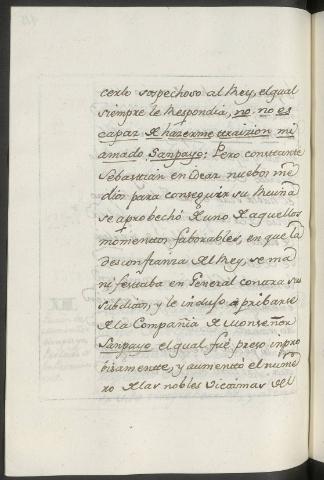 cerlo sospechoso al Rey, el qual
siempre le Respondia, no, no es
capaz de házerme traizion mi
amado Sanpayo: Pero constante
Sebastian en Dear nuebos mē
dios para conseguir su Ruina
se aprobechó de uno de aquellos
momentos faborables, en que la
desconfianza del Rey, se ma
nifestaba en General contra sus
subditos, y le indujo á pribarse
de la Compañia de Monseñor
Sanpayo el qual fué preso inpro
bisamente, y aumentó el nume
ro de las nobles victimas del